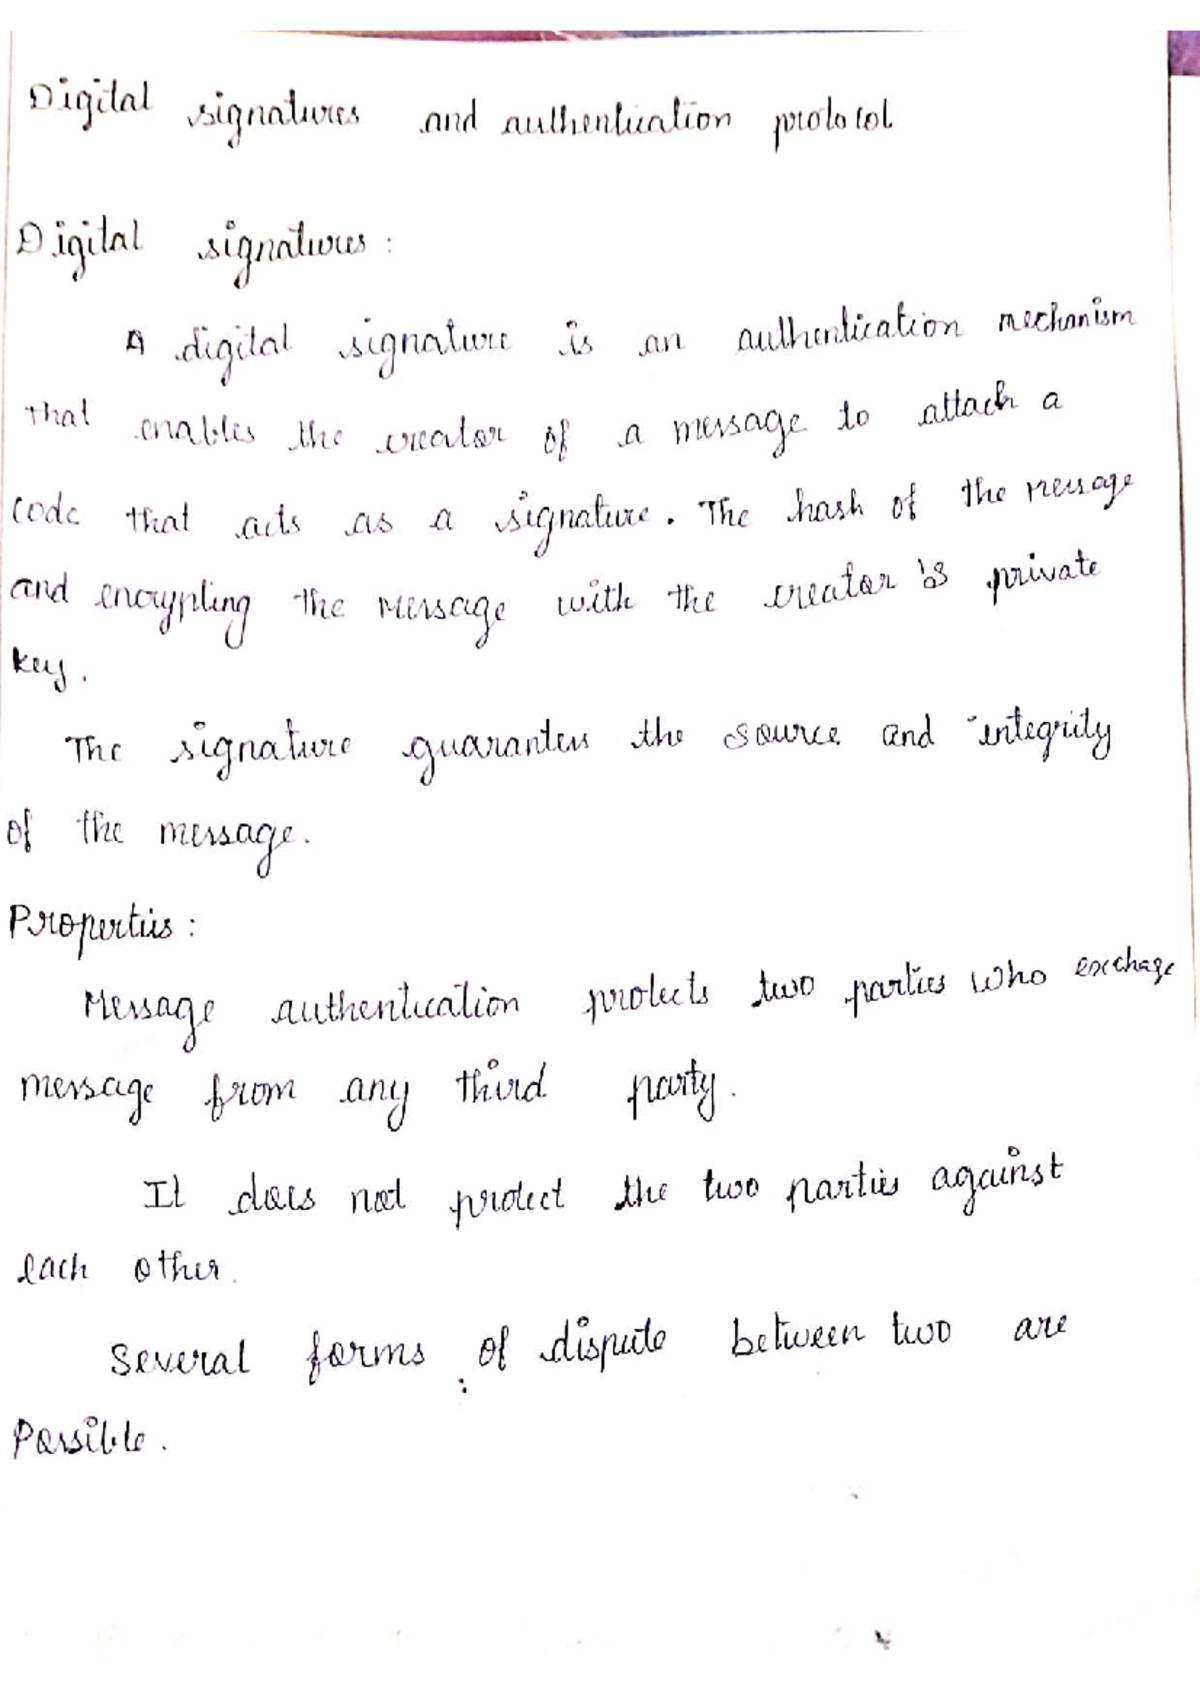 Digital signatures and authentication protocol
Digital signatures :
A digital signature is an authentication mechanism
that enables the creator of a message to attach a
code that acts as a signature. The hash of the message
and encrypting the message with the creator's private
key.
The signature guarantees the source and integrity
of the message.
Properties :
Message authentication protects two parties who exchage
message from any third party.
It does not protect the two parties against
each other.
Several forms of dispute between two are
Possible.